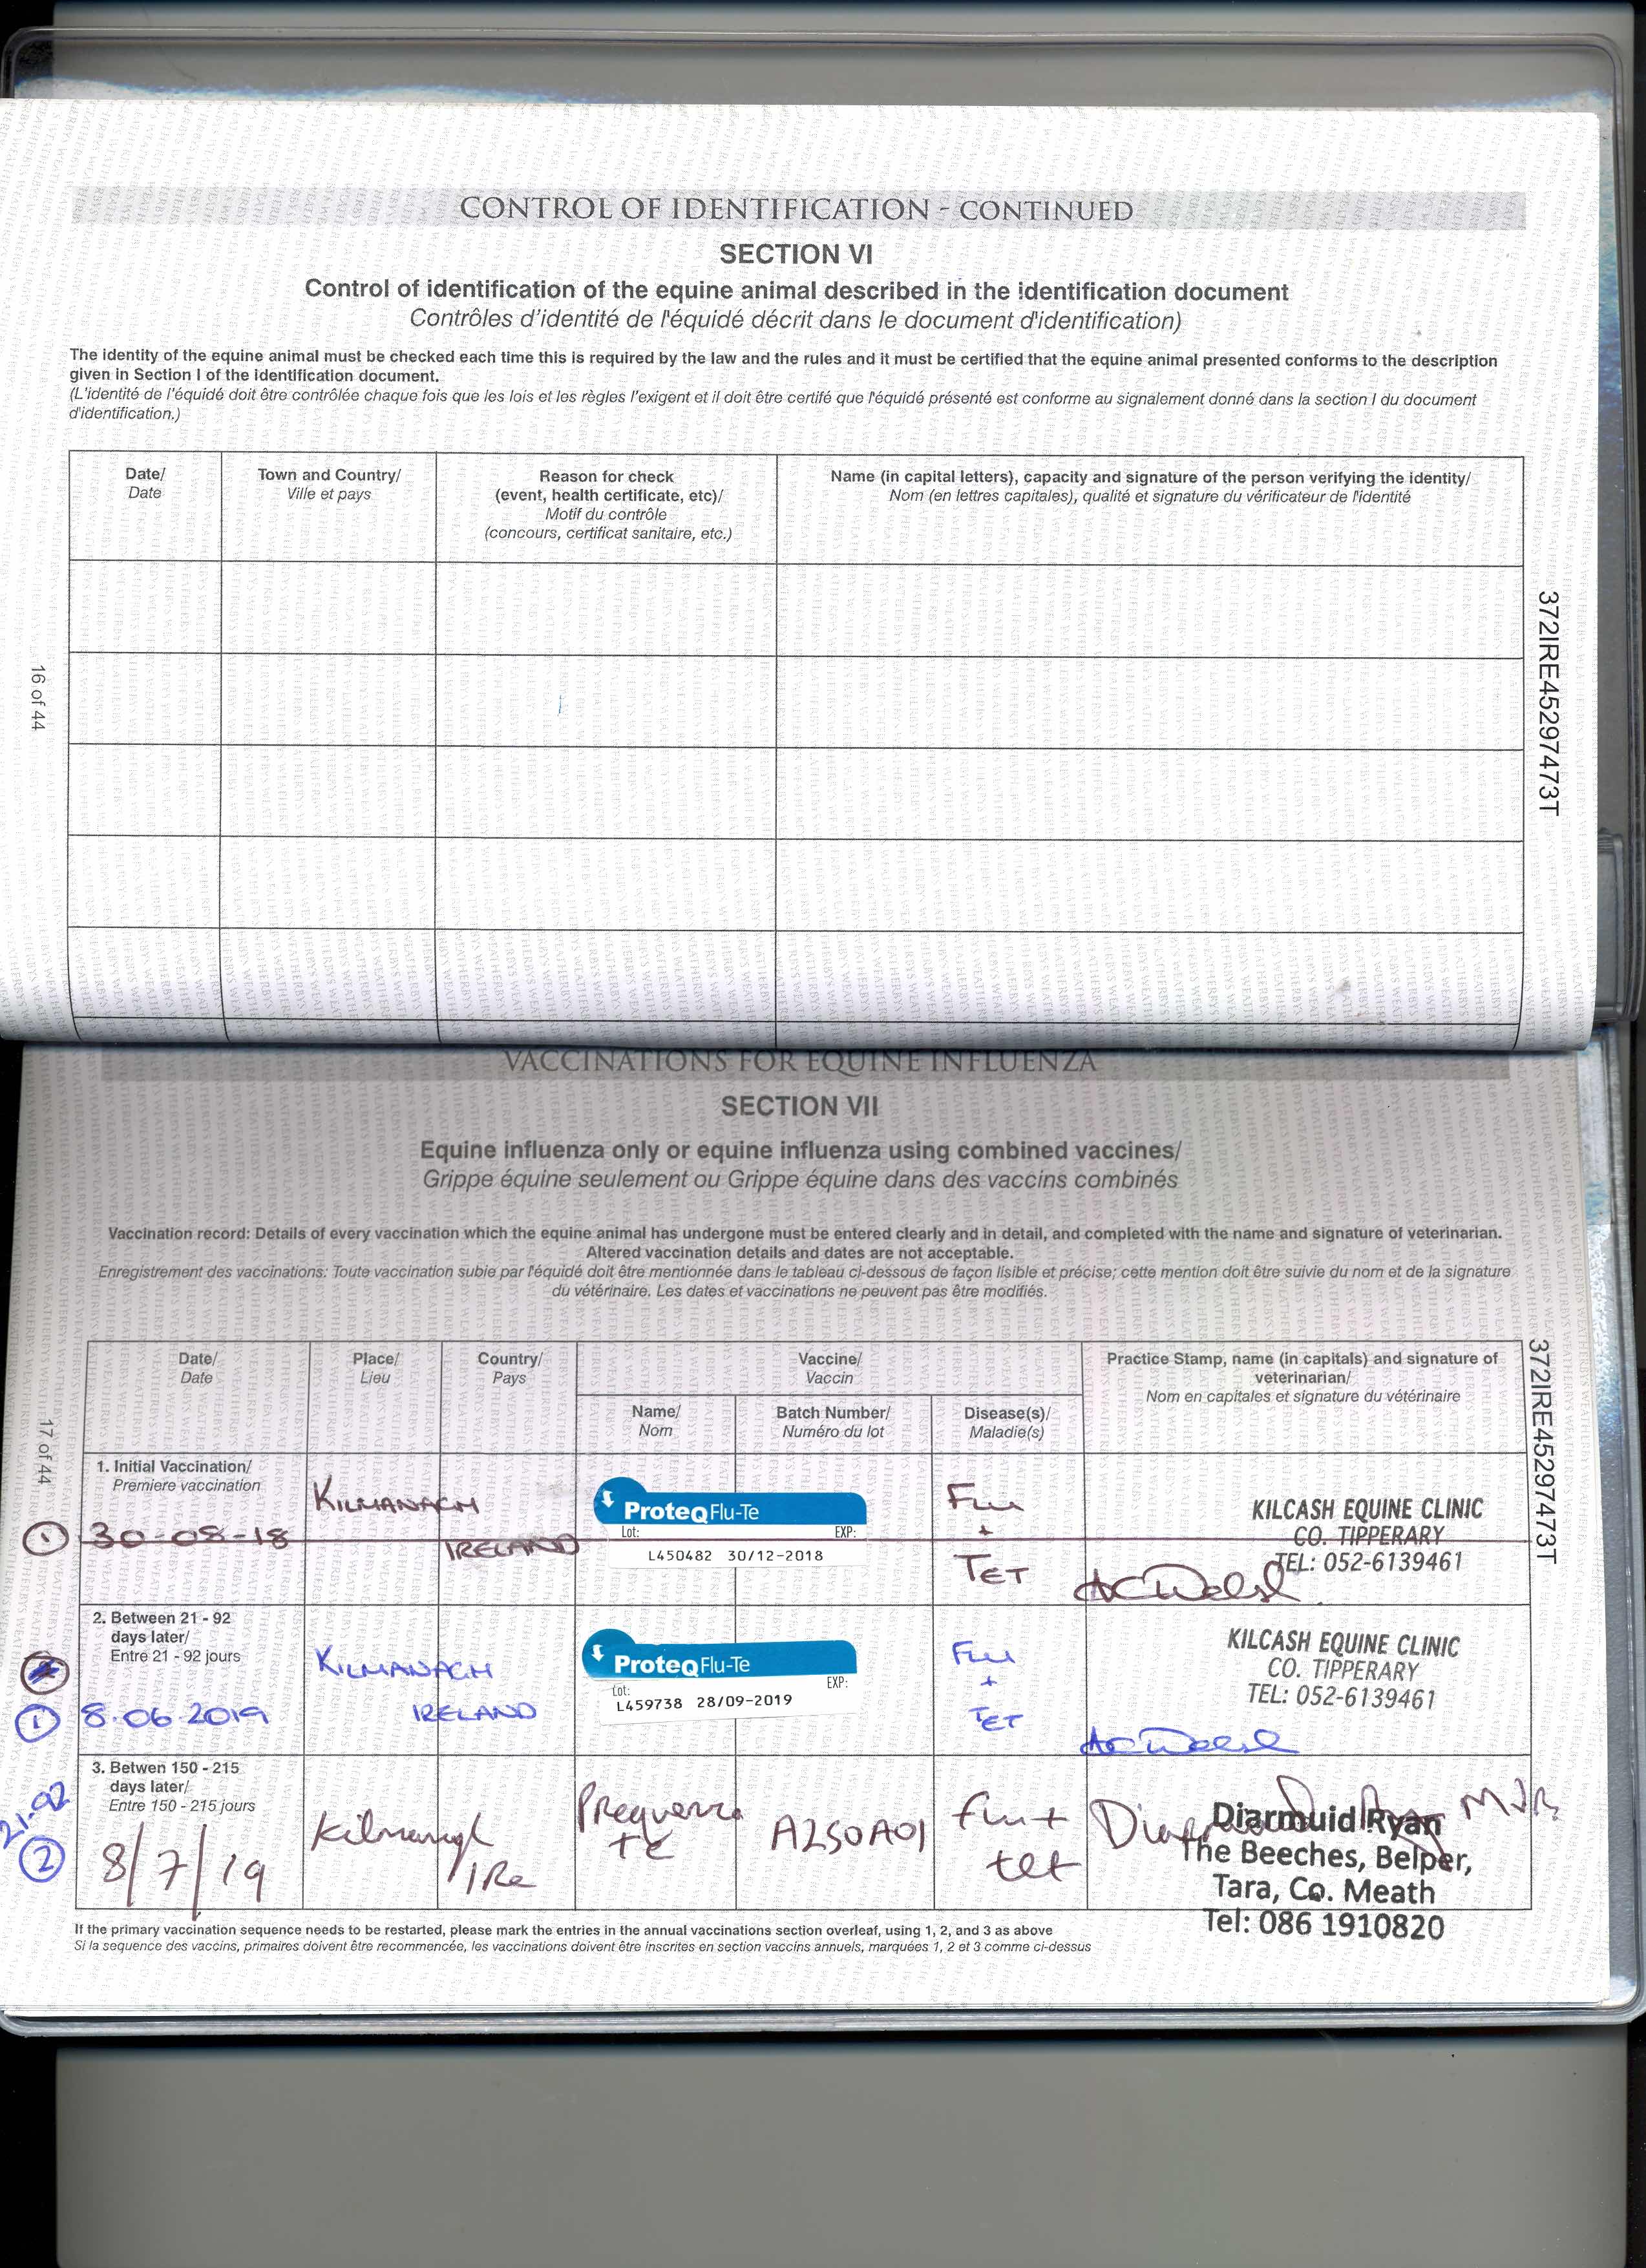 CONTROL OF IDENTIFICATION - CONTINUED
SECTION VI
Control of identification of the equine animal described in the identification document
Contrôles d'identité de l'équidé décrit dans le document d'identification)
The identity of the equine animal must be checked each time this is required by the law and the rules and it must be certified that the equine animal presented conforms to the description
given in Section I of the identification document.
(L'identité de l'équidé doit être contrôlée chaque fois que les lois et les règles l'exigent et il doit être certifé que l'équidé présenté est conforme au signalement donné dans la section I du document
d'identification.)
Date/
Date
Town and Country/
Ville et pays
Reason for check
(event, health certificate, etc)/
Motif du contrôle
(concours, certificat sanitaire, etc.)
Name (in capital letters), capacity and signature of the person verifying the identity/
Nom (en lettres capitales), qualité et signature du vérificateur de l'identité
16 of 44
372IRE45297473T
VACCINATIONS FOR EQUINE INFLUENZA
SECTION VII
Equine influenza only or equine influenza using combined vaccines/
Grippe équine seulement ou Grippe équine dans des vaccins combinés
Vaccination record: Details of every vaccination which the equine animal has undergone must be entered clearly and in detail, and completed with the name and signature of veterinarian.
Altered vaccination details and dates are not acceptable.
Enregistrement des vaccinations: Toute vaccination subie par l'équidé doit être mentionnée dans le tableau ci-dessous de façon lisible et précise; cette mention doit être suivie du nom et de la signature
du vétérinaire. Les dates et vaccinations ne peuvent pas être modifiés.
Date/
Date
Place/
Lieu
Country/
Pays
Vaccine/
Vaccin
Name/
Nom
Batch Number/
Numéro du lot
Disease(s)/
Maladie(s)
Practice Stamp, name (in capitals) and signature of
veterinarian/
Nom en capitales et signature du vétérinaire
17 of 44
372IRE45297473T
1. Initial Vaccination/
Premiere vaccination
1 30-08-18
KILMANAGH
IRELAND
ProteqFlu-Te
Lot: EXP:
L450482 30/12-2018
Flu
+
TET
KILCASH EQUINE CLINIC
CO. TIPPERARY
TEL: 052-6139461
AC Walsh
2. Between 21 - 92
days later/
Entre 21 - 92 jours
1 8.06.2019
KILMANAGH
IRELAND
ProteqFlu-Te
Lot: EXP:
L459738 28/09-2019
Flu
+
TET
KILCASH EQUINE CLINIC
CO. TIPPERARY
TEL: 052-6139461
AC Walsh
3. Betwen 150 - 215
days later/
Entre 150 - 215 jours
21-92
2
8/7/19
Kilmanagh
IRe
Prequenza
te
A250A01
flu+
tet
Diarmuid Ryan MVB
Diarmuid Ryan
The Beeches, Belper,
Tara, Co. Meath
Tel: 086 1910820
If the primary vaccination sequence needs to be restarted, please mark the entries in the annual vaccinations section overleaf, using 1, 2, and 3 as above
Si la sequence des vaccins, primaires doivent être recommencée, les vaccinations doivent être inscrites en section vaccins annuels, marquées 1, 2 et 3 comme ci-dessus